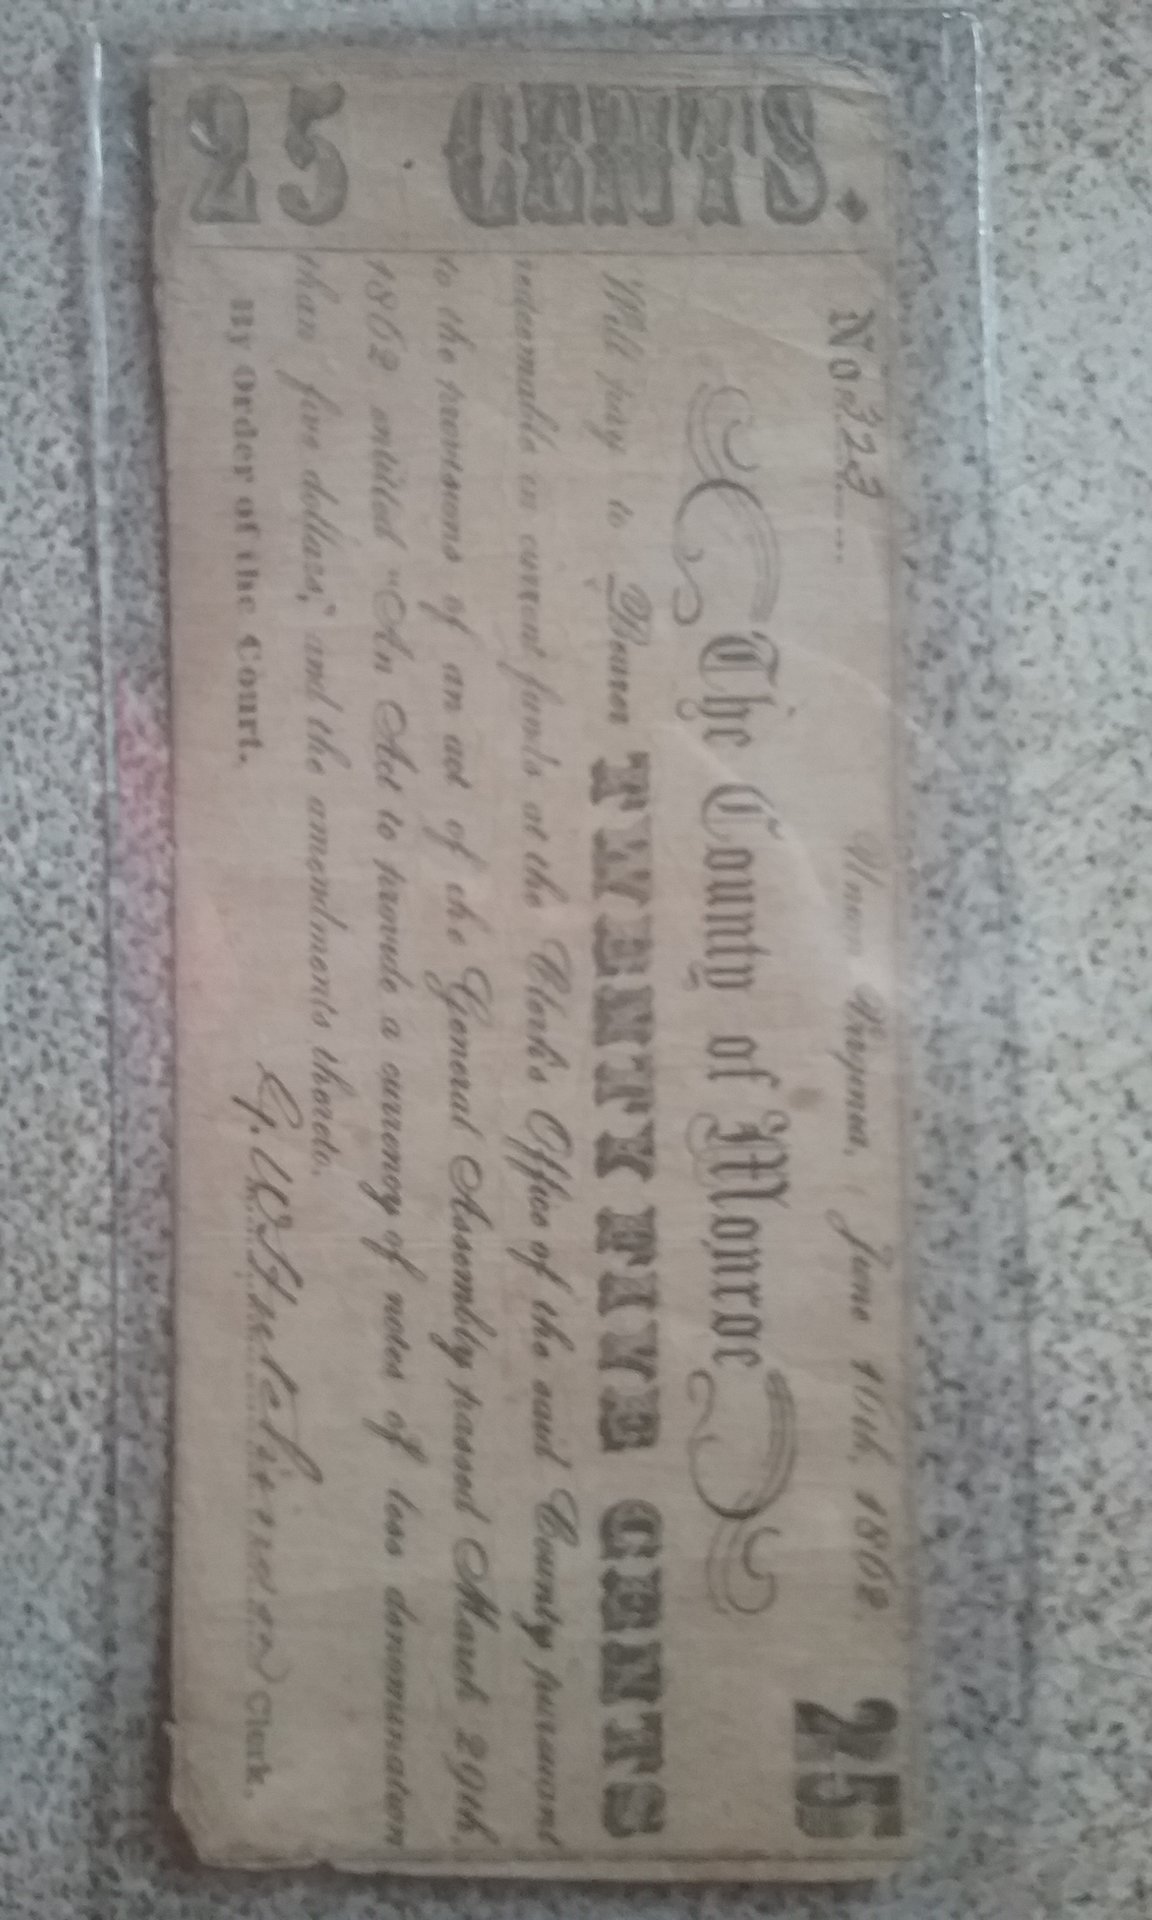 25 CENTS.
No. 323
Union Virginia, June 10th, 1862.
25
The County of Monroe
Will pay to Bearer TWENTY FIVE CENTS
redeemable in current funds at the Clerk's Office of the said County pursuant
to the provisions of an act of the General Assembly passed March 29th,
1862 entitled "An Act to provide a currency of notes of less denomination
than five dollars," and the amendments thereto.
By Order of the Court.
Clerk.